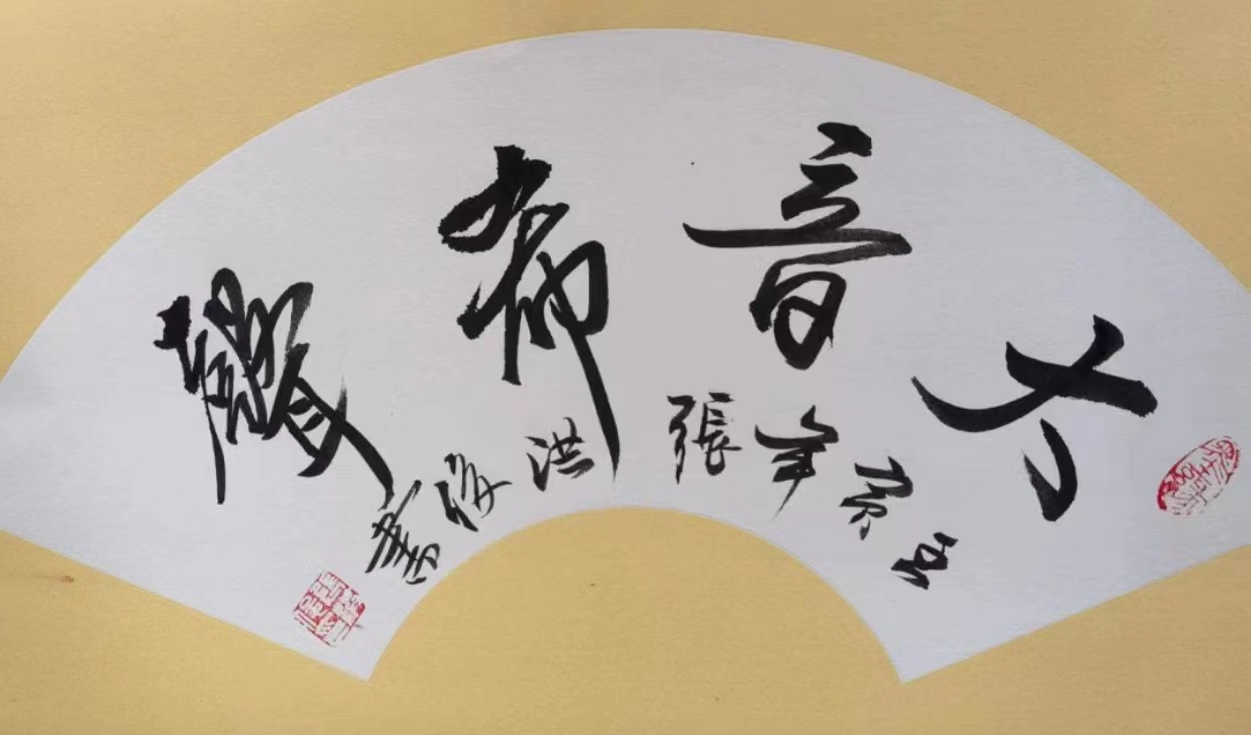 大音希聲
年 張洪俊書